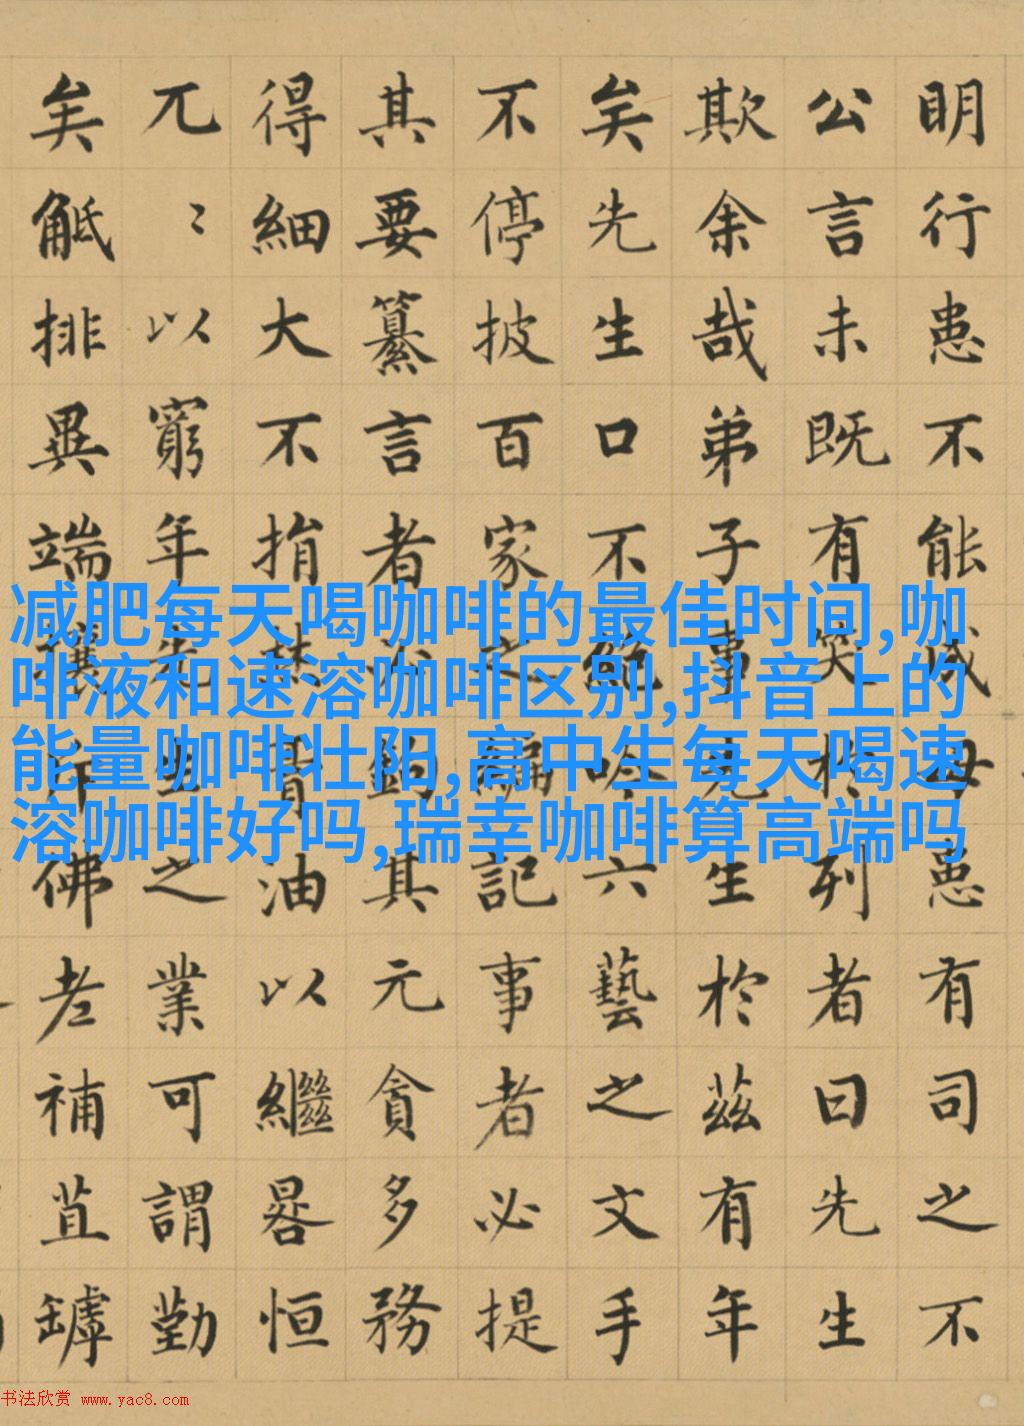 明行患不能成毋患有司之不
公言未既有笑於列者曰先生
欺余哉弟子事先生於茲有年
矣先生口不絕吟六藝之文手
不停披百家之編記事者必提
其要纂言者必鉤其元貪多務
得細大不捐焚膏油以繼晷恒
兀〻以窮年先生之業可謂勤
矣觝排異端攘斥佛老補苴罅
减肥每天喝咖啡的最佳时间,咖
啡液和速溶咖啡区别,抖音上的
能量咖啡壮阳,高中生每天喝速
溶咖啡好吗,瑞幸咖啡算高端吗
书法欣赏 www.yac8.com